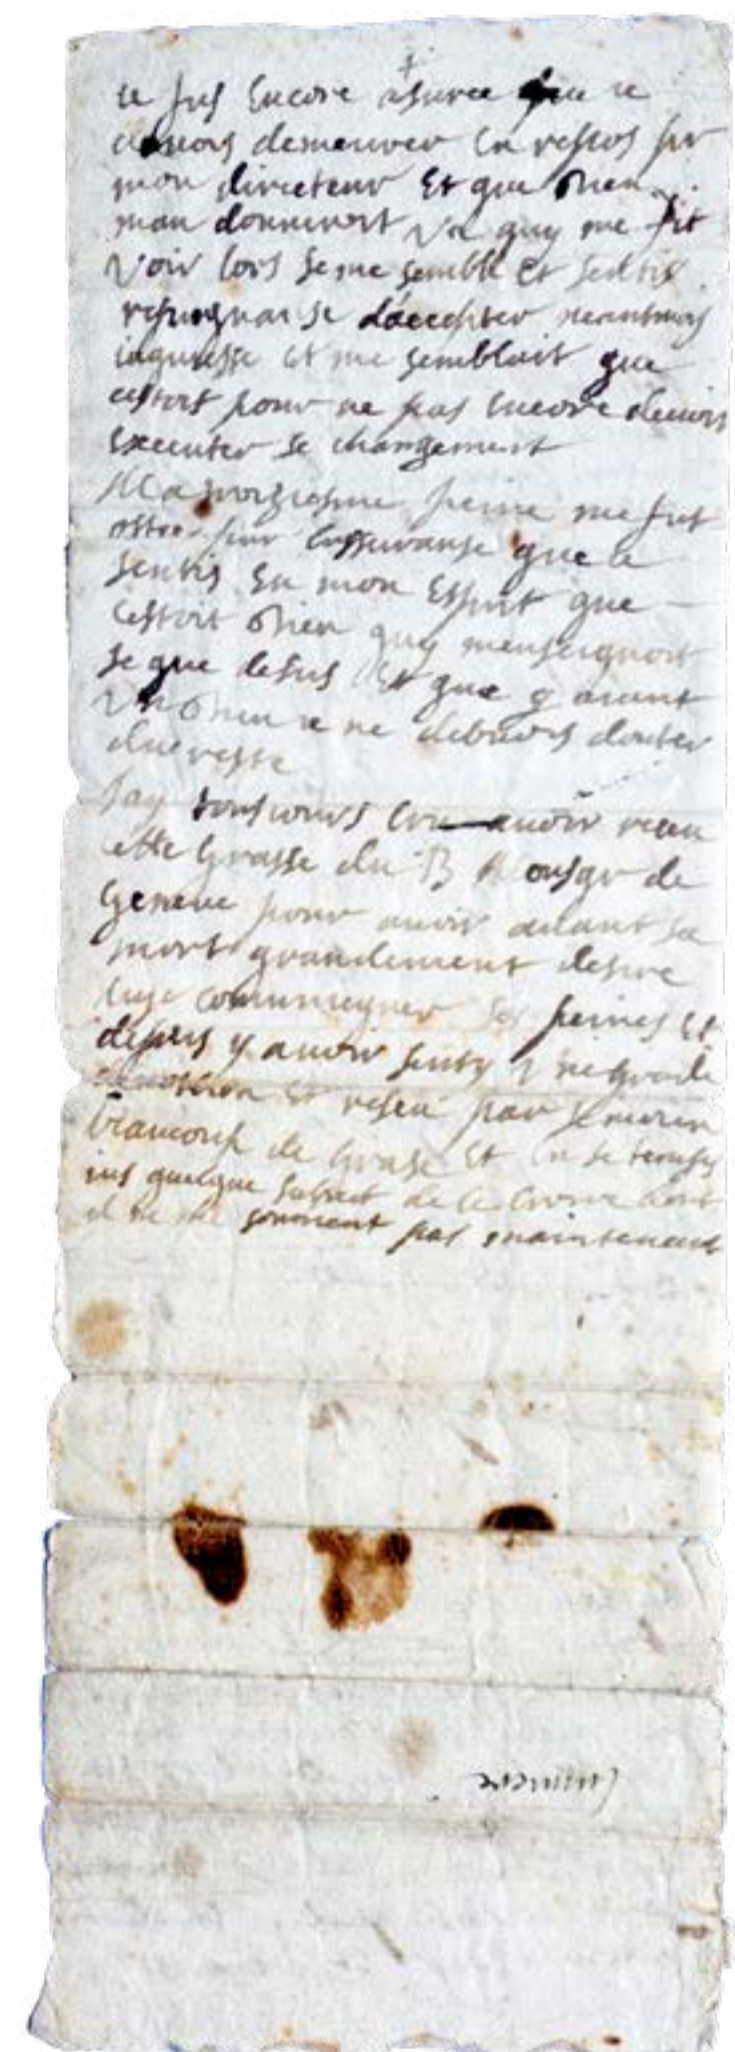 +
Je fus Encore asuree que ie
devois demeurer En repos sur
mon directeur Et que Dieu
man donneroit Vn quy me fit
Voir lors Se me semble Et sentis
repugnanse daccepter neantmoins
iaquiesse Et me sembloit que
cestoit pour ne pas Encore devoir
Executer se changement
Ma troiziesme peine me fut
ostee par lassuranse que ie
sentis En mon Esprit que
Cestoit Dieu quy menseignoit
se que desus Et que y aiant
Vn Dieu ie ne debvois douter
du reste
Jay tousiours Creu avoir receu
cette Grasse du B Monsgr de
Geneve pour avoir avant sa
mort grandement desire
luy communiquer ses peines Et
depuis y avoir senty Vne grande
devotion Et reseu par
beaucoup de Grase Et En se temps
ius quelque subject de le Croire dont
il ne me souvient pas maintenant
Lumiere